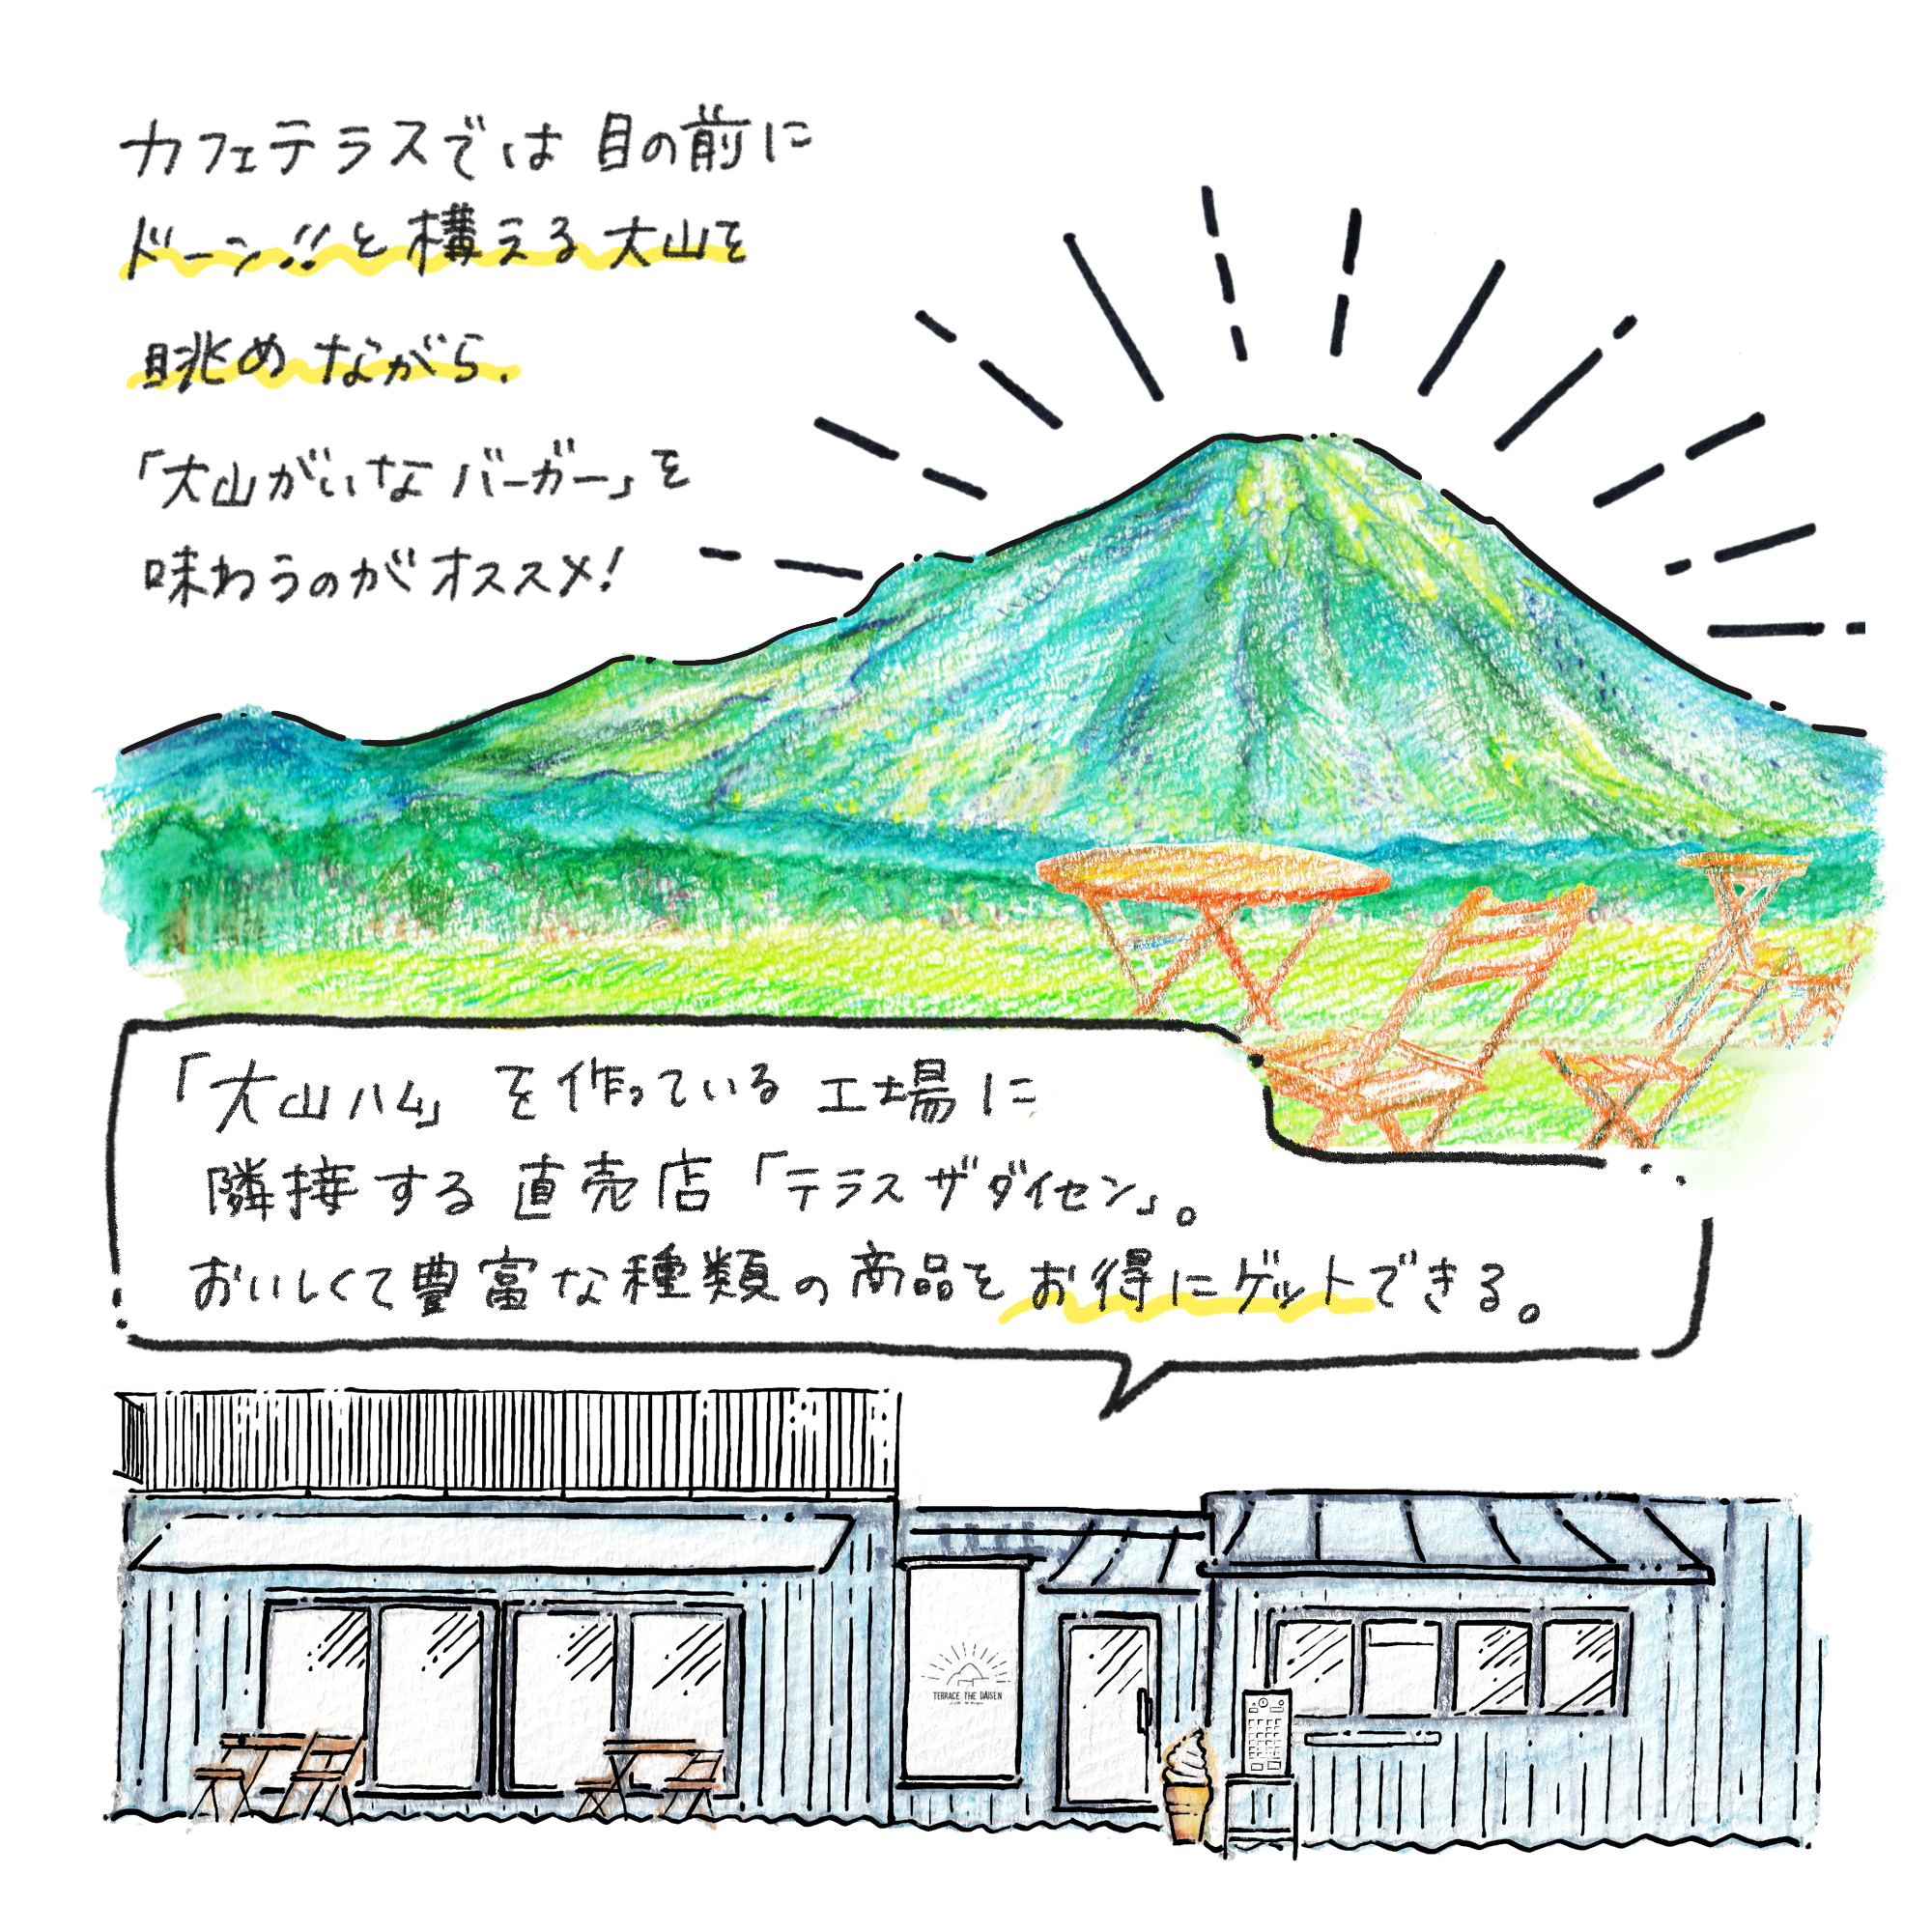 カフェテラスでは目の前に
ドーン!!と構える大山を
眺めながら、
「大山がいなバーガー」を
味わうのがオススメ!
「大山ハム」を作っている工場に
隣接する直売店「テラスザダイセン」。
おいしくて豊富な種類の商品をお得にゲットできる。
TERRACE THE DAISEN